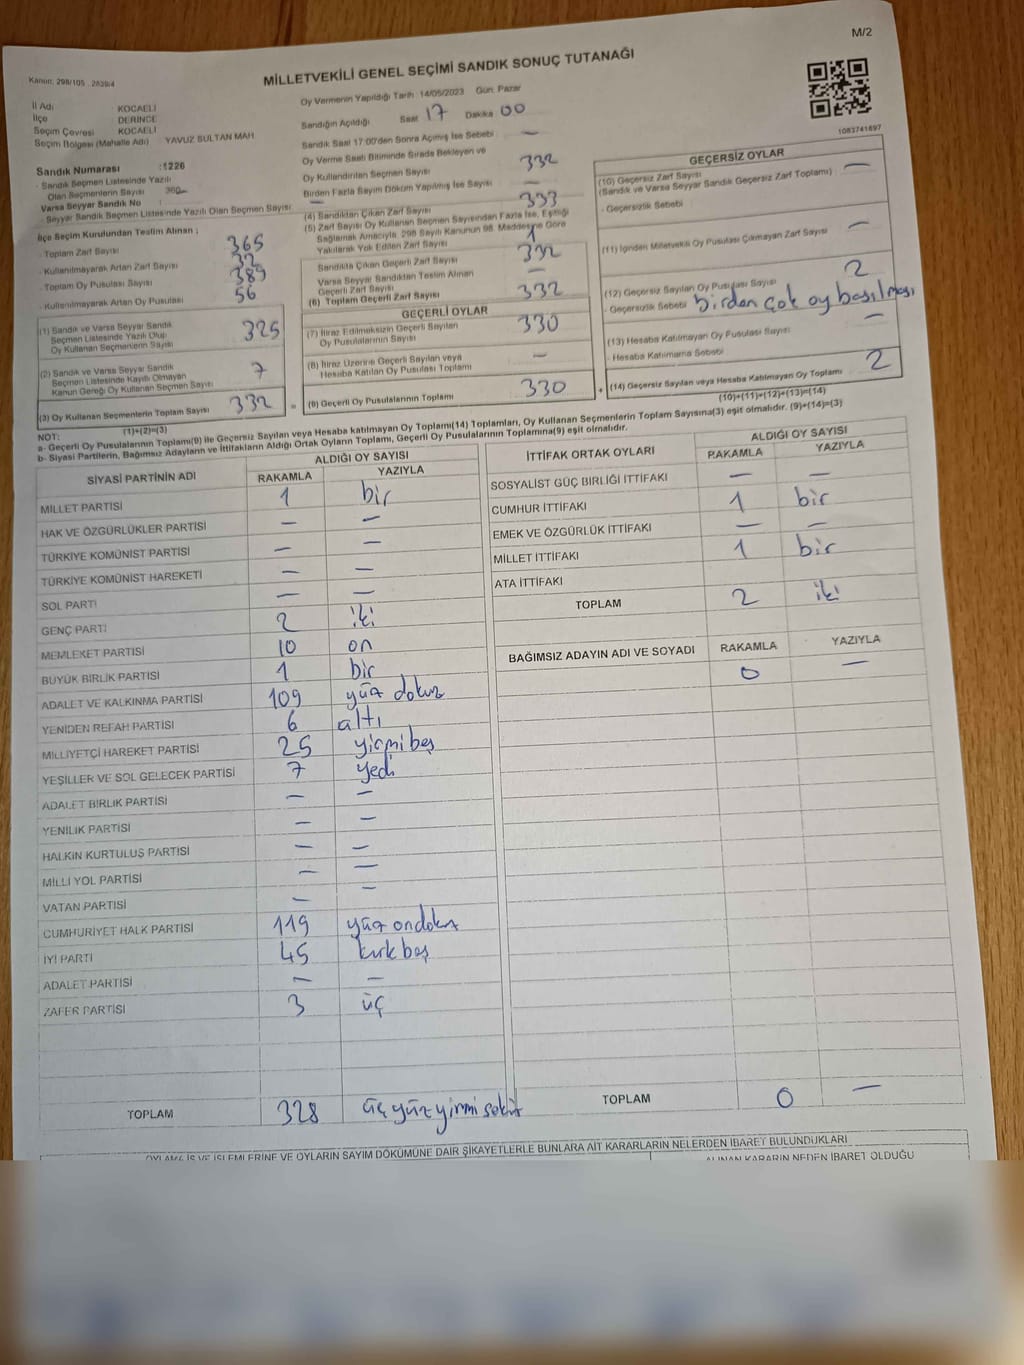 M/2
Kanun: 298/105
MİLLETVEKİLİ GENEL SEÇİMİ SANDIK SONUÇ TUTANAĞI
1083741697
İl Adı : KOCAELİ
İlçe : DERİNCE
Seçim Çevresi : KOCAELİ
Seçim Bölgesi (Mahalle Adı) : YAVUZ SULTAN MAH
Sandık Numarası :1226
- Sandık Seçmen Listesinde Yazılı
Olan Seçmenlerin Sayısı : 360
Varsa Seyyar Sandık No : —
- Seyyar Sandık Seçmen Listesinde Yazılı Olan Seçmen Sayısı :
İlçe Seçim Kurulundan Teslim Alınan ;
- Toplam Zarf Sayısı 365
- Kullanılmayarak Artan Zarf Sayısı 32
- Toplam Oy Pusulası Sayısı 389
- Kullanılmayarak Artan Oy Pusulası 56
(1) Sandık ve Varsa Seyyar Sandık
Seçmen Listesinde Yazılı Olup
Oy Kullanan Seçmenlerin Sayısı 325
(2) Sandık ve Varsa Seyyar Sandık
Seçmen Listesinde Kayıtlı Olmayan
Kanun Gereği Oy Kullanan Seçmen Sayısı 7
(3) Oy Kullanan Seçmenlerin Toplam Sayısı 332
(1)+(2)=(3)
Oy Vermenin Yapıldığı Tarih :14/05/2023 Gün: Pazar
Sandığın Açıldığı : Saat 17 Dakika 00
Sandık Saat 17:00'den Sonra Açılmış İse Sebebi : —
Oy Verme Saati Bitiminde Sırada Bekleyen ve
Oy Kullandırılan Seçmen Sayısı 332
Birden Fazla Sayım Döküm Yapılmış İse Sayısı —
(4) Sandıktan Çıkan Zarf Sayısı 333
(5) Zarf Sayısı Oy Kullanan Seçmen Sayısından Fazla İse, Eşitliği
Sağlamak Amacıyla, 298 Sayılı Kanunun 98. Maddesine Göre
Yakılarak Yok Edilen Zarf Sayısı 1
Sandıkta Çıkan Geçerli Zarf Sayısı 332
Varsa Seyyar Sandıktan Teslim Alınan
Geçerli Zarf Sayısı —
(6) Toplam Geçerli Zarf Sayısı 332
GEÇERLİ OYLAR
(7) İtiraz Edilmeksizin Geçerli Sayılan
Oy Pusulalarının Sayısı 330
(8) İtiraz Üzerine Geçerli Sayılan veya
Hesaba Katılan Oy Pusulası Toplamı —
(9) Geçerli Oy Pusulalarının Toplamı 330
GEÇERSİZ OYLAR
(10) Geçersiz Zarf Sayısı
(Sandık ve Varsa Seyyar Sandık Geçersiz Zarf Toplamı) : —
- Geçersizlik Sebebi :
(11) İçinden Milletvekili Oy Pusulası Çıkmayan Zarf Sayısı —
(12) Geçersiz Sayılan Oy Pusulası Sayısı 2
- Geçersizlik Sebebi birden çok oy basılması
(13) Hesaba Katılmayan Oy Pusulası Sayısı —
- Hesaba Katılmama Sebebi :
(14) Geçersiz Sayılan veya Hesaba Katılmayan Oy Toplamı 2
(10)+(11)+(12)+(13)=(14)
NOT:
a- Geçerli Oy Pusulalarının Toplamı(9) ile Geçersiz Sayılan veya Hesaba katılmayan Oy Toplamı(14) Toplamları, Oy Kullanan Seçmenlerin Toplam Sayısına(3) eşit olmalıdır. (9)+(14)=(3)
b- Siyasi Partilerin, Bağımsız Adayların ve İttifakların Aldığı Ortak Oyların Toplamı, Geçerli Oy Pusulalarının Toplamına(9) eşit olmalıdır.
SİYASİ PARTİNİN ADI ALDIĞI OY SAYISI
RAKAMLA YAZIYLA
MİLLET PARTİSİ 1 bir
HAK VE ÖZGÜRLÜKLER PARTİSİ — —
TÜRKİYE KOMÜNİST PARTİSİ — —
TÜRKİYE KOMÜNİST HAREKETİ — —
SOL PARTİ — —
GENÇ PARTİ 2 iki
MEMLEKET PARTİSİ 10 on
BÜYÜK BİRLİK PARTİSİ 1 bir
ADALET VE KALKINMA PARTİSİ 109 yüz dokuz
YENİDEN REFAH PARTİSİ 6 altı
MİLLİYETÇİ HAREKET PARTİSİ 25 yirmi beş
YEŞİLLER VE SOL GELECEK PARTİSİ 7 yedi
ADALET BİRLİK PARTİSİ — —
YENİLİK PARTİSİ — —
HALKIN KURTULUŞ PARTİSİ — —
MİLLİ YOL PARTİSİ — —
VATAN PARTİSİ — —
CUMHURİYET HALK PARTİSİ 119 yüz ondokuz
İYİ PARTİ 45 kırk beş
ADALET PARTİSİ — —
ZAFER PARTİSİ 3 üç
TOPLAM 328 üç yüz yirmi sekiz
İTTİFAK ORTAK OYLARI ALDIĞI OY SAYISI
RAKAMLA YAZIYLA
SOSYALİST GÜÇ BİRLİĞİ İTTİFAKI — —
CUMHUR İTTİFAKI 1 bir
EMEK VE ÖZGÜRLÜK İTTİFAKI — —
MİLLET İTTİFAKI 1 bir
ATA İTTİFAKI
TOPLAM 2 iki
BAĞIMSIZ ADAYIN ADI VE SOYADI RAKAMLA YAZIYLA
0 —
TOPLAM 0 —
OYLAMA İŞ VE İŞLEMLERİNE VE OYLARIN SAYIM DÖKÜMÜNE DAİR ŞİKAYETLERLE BUNLARA AİT KARARLARIN NELERDEN İBARET BULUNDUKLARI
ALINAN KARARIN NEDEN İBARET OLDUĞU